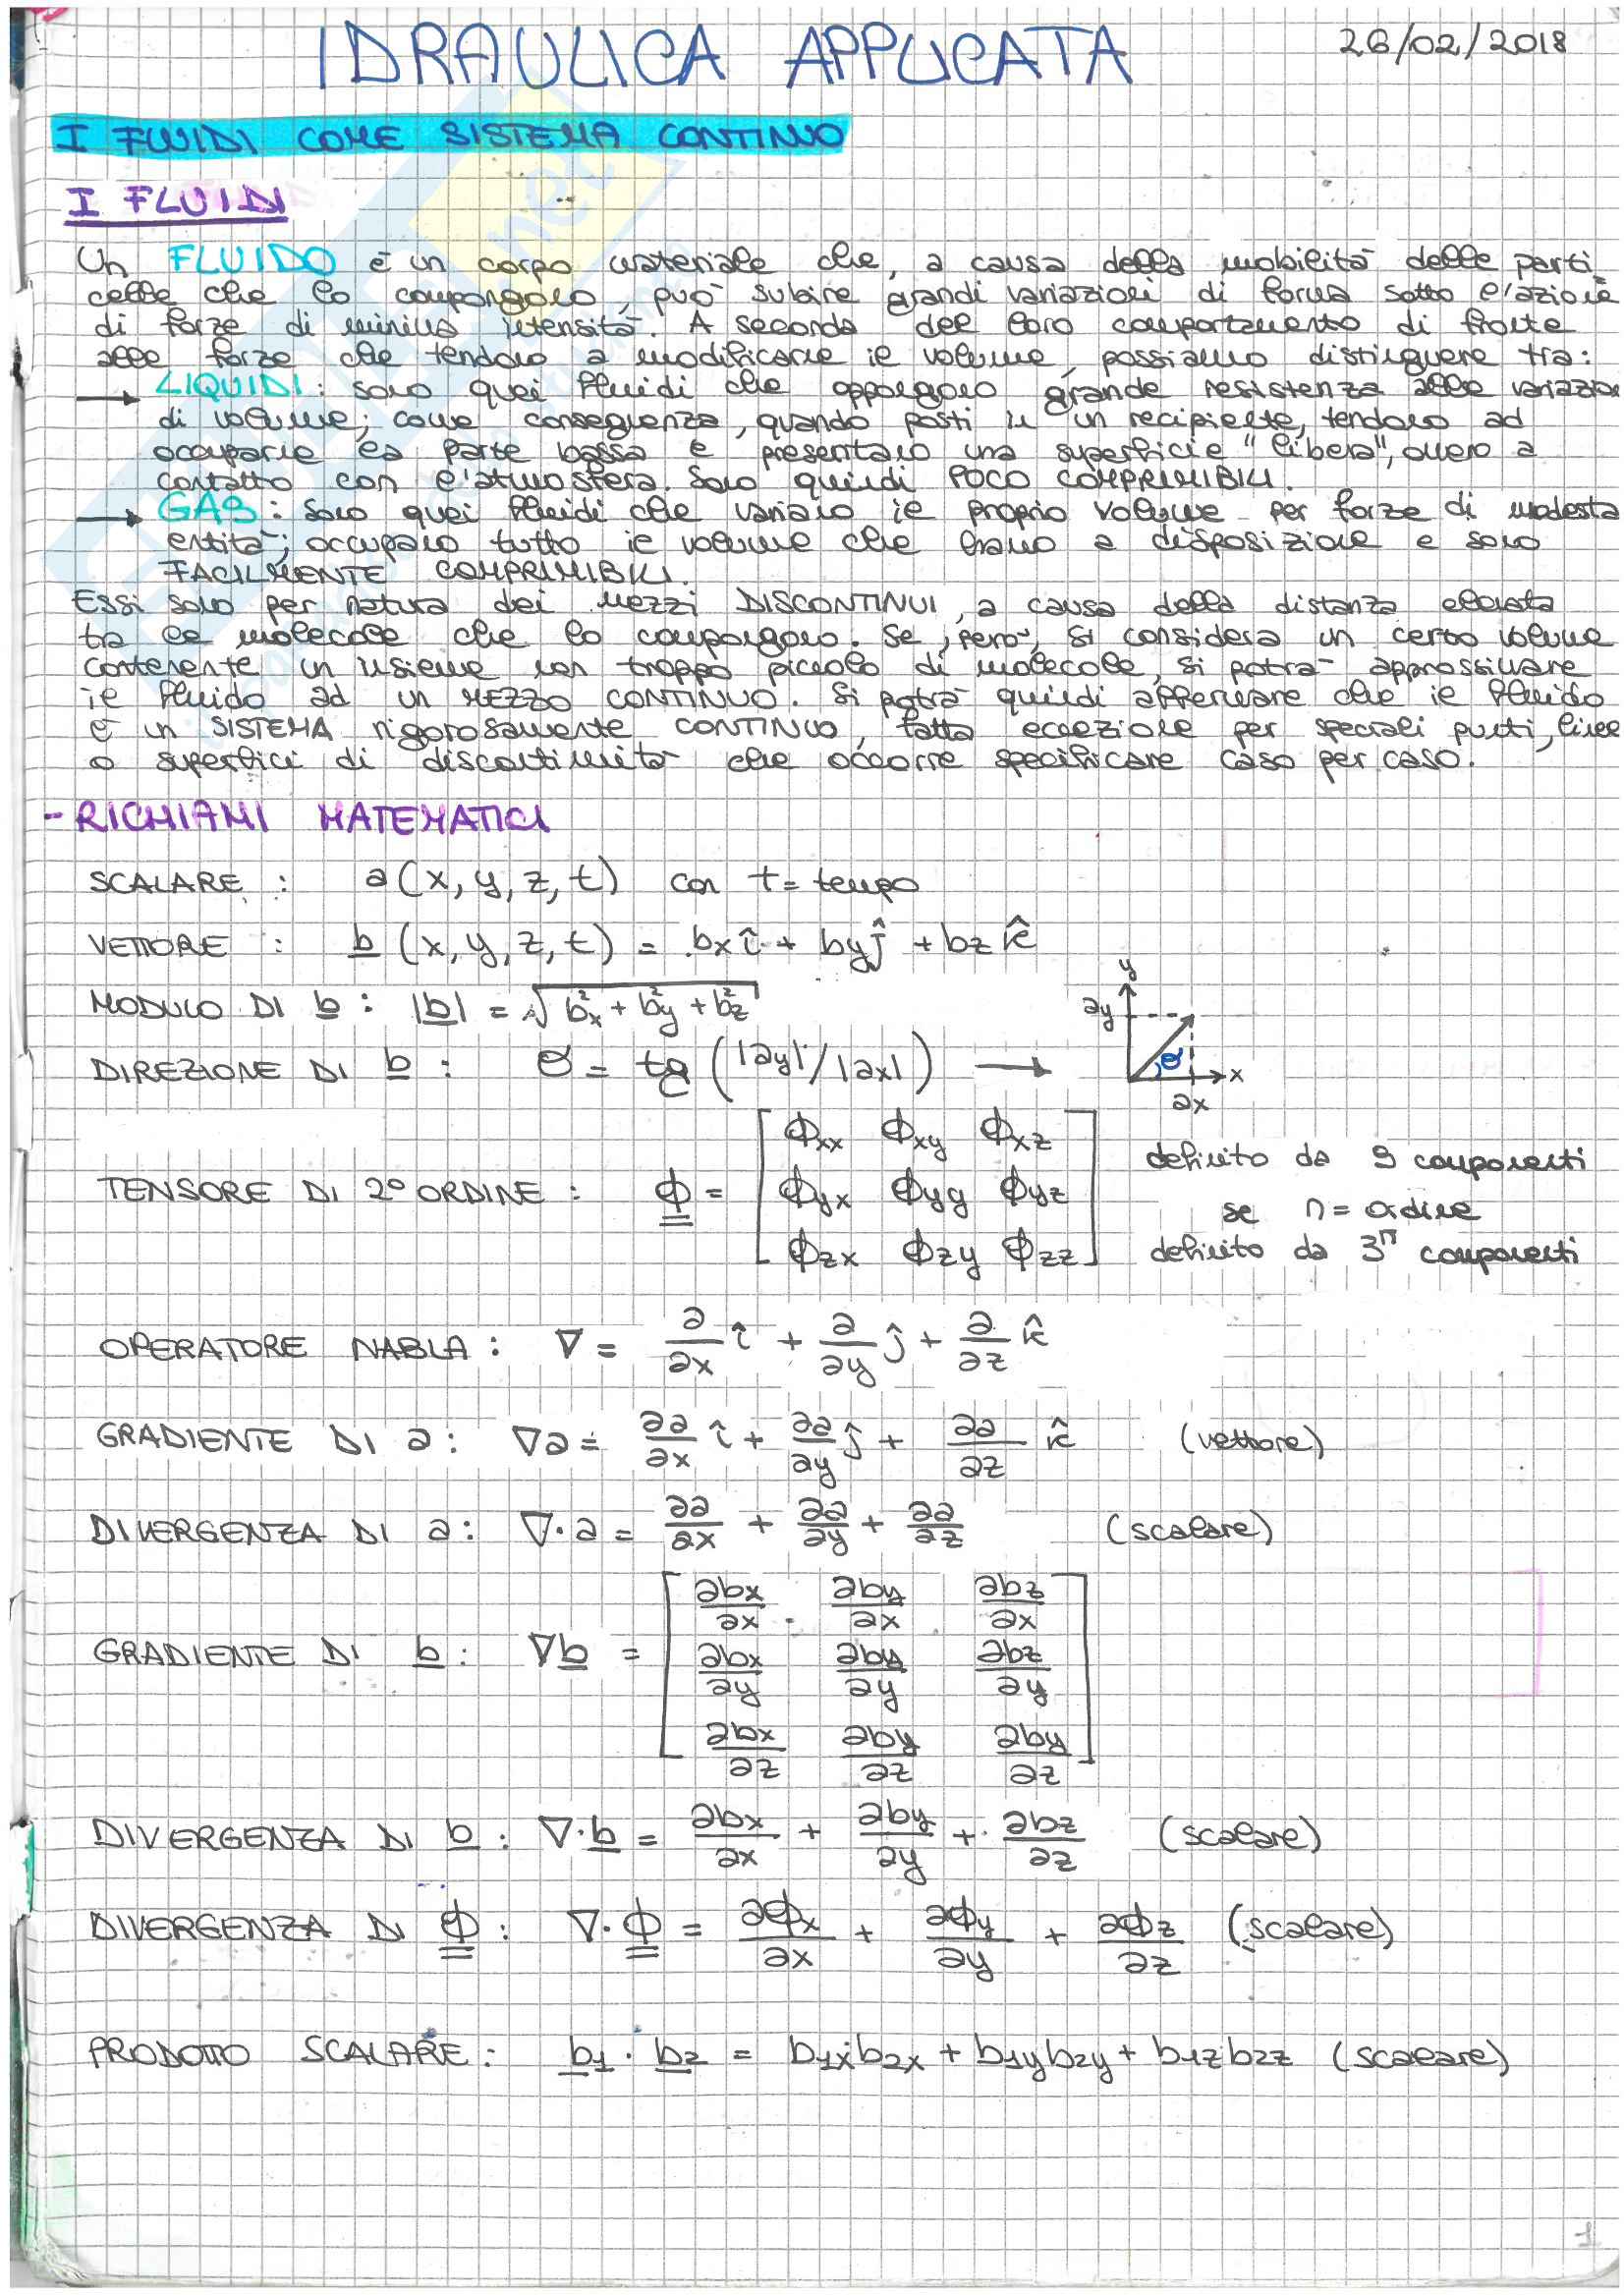 IDRAULICA APPLICATA 26/02/2018
I FLUIDI COME SISTEMA CONTINUO
I FLUIDI
Un FLUIDO è un corpo materiale che, a causa della mobilità delle parti
celle che lo compongono, può subire grandi variazioni di forma sotto l'azione
di forze di minima intensità. A seconda del loro comportamento di fronte
alle forze che tendono a modificarne il volume, possiamo distinguere tra:
→ LIQUIDI: sono quei fluidi che oppongono grande resistenza alle variazioni
di volume; come conseguenza, quando posti in un recipiente, tendono ad
occuparne la parte bassa e presentano una superficie "libera", ovvero a
contatto con l'atmosfera. Sono quindi POCO COMPRIMIBILI.
→ GAS: sono quei fluidi che variano il proprio volume per forze di modesta
entità; occupano tutto il volume che hanno a disposizione e sono
FACILMENTE COMPRIMIBILI.
Essi sono per natura dei mezzi DISCONTINUI, a causa della distanza elevata
tra le molecole che lo compongono. Se, però, si considera un certo volume
contenente un insieme non troppo piccolo di molecole, si potrà approssimare
il fluido ad un MEZZO CONTINUO. Si potrà quindi affermare che il fluido
è un SISTEMA rigorosamente CONTINUO, fatta eccezione per speciali punti, linee
o superfici di discontinuità che occorre specificare caso per caso.
- RICHIAMI MATEMATICI
SCALARE : a(x,y,z,t) con t= tempo
VETTORE : b (x,y,z,t) = bx î + by ĵ + bz k̂
MODULO DI b : |b| = √(b²x + b²y + b²z)
DIREZIONE DI b : θ = tg (|ay|/|ax|) → y ay θ x ax
TENSORE DI 2° ORDINE : Φ = [Φxx Φxy Φxz
Φyx Φyy Φyz
Φzx Φzy Φzz]
definito da 9 componenti
se n= ordine
definito da 3ⁿ componenti
OPERATORE NABLA : ∇ = ∂/∂x î + ∂/∂y ĵ + ∂/∂z k̂
GRADIENTE DI a : ∇a = ∂a/∂x î + ∂a/∂y ĵ + ∂a/∂z k̂ (vettore)
DIVERGENZA DI a : ∇·a = ∂a/∂x + ∂a/∂y + ∂a/∂z (scalare)
GRADIENTE DI b : ∇b = [∂bx/∂x ∂by/∂x ∂bz/∂x
∂bx/∂y ∂by/∂y ∂bz/∂y
∂bx/∂z ∂by/∂z ∂by/∂z]
DIVERGENZA DI b : ∇·b = ∂bx/∂x + ∂by/∂y + ∂bz/∂z (scalare)
DIVERGENZA DI Φ : ∇·Φ = ∂Φx/∂x + ∂Φy/∂y + ∂Φz/∂z (scalare)
PRODOTTO SCALARE : b1 · b2 = b1x b2x + b1y b2y + b1z b2z (scalare)
1